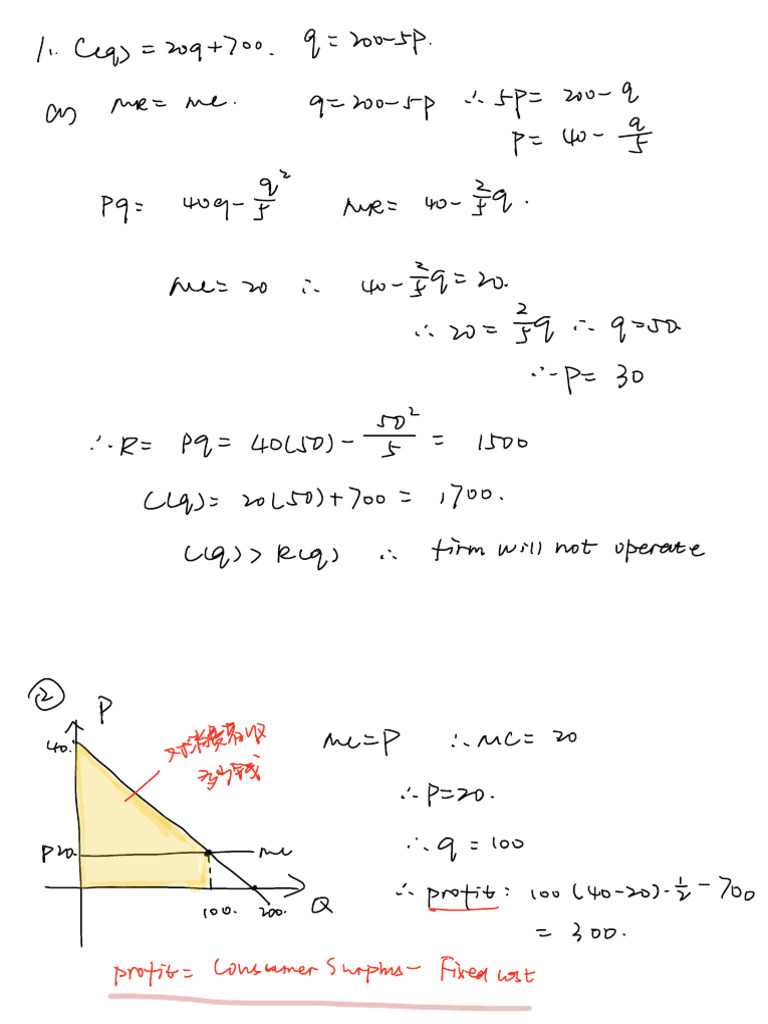 1. C(q) = 20q+700. q = 200-5p.
(1) MR = MC. q = 200-5p ∴ 5p = 200-q
p = 40 - q/5
pq = 40q - q²/5 MR = 40 - 2/5 q.
MC = 20 ∴ 40 - 2/5 q = 20.
∴ 20 = 2/5 q ∴ q = 50
∴ p = 30
∴ R = pq = 40(50) - 50²/5 = 1500
C(q) = 20(50)+700 = 1700.
C(q) > R(q) ∴ firm will not operate
② P
40.
对消费者收
多少钱
MC = P ∴ MC = 20
∴ P = 20.
P20 MC
∴ q = 100
100. 200. Q
∴ profit: 100 (40-20)·1/2 - 700
= 300.
profit = Consumer Surplus - Fixed cost